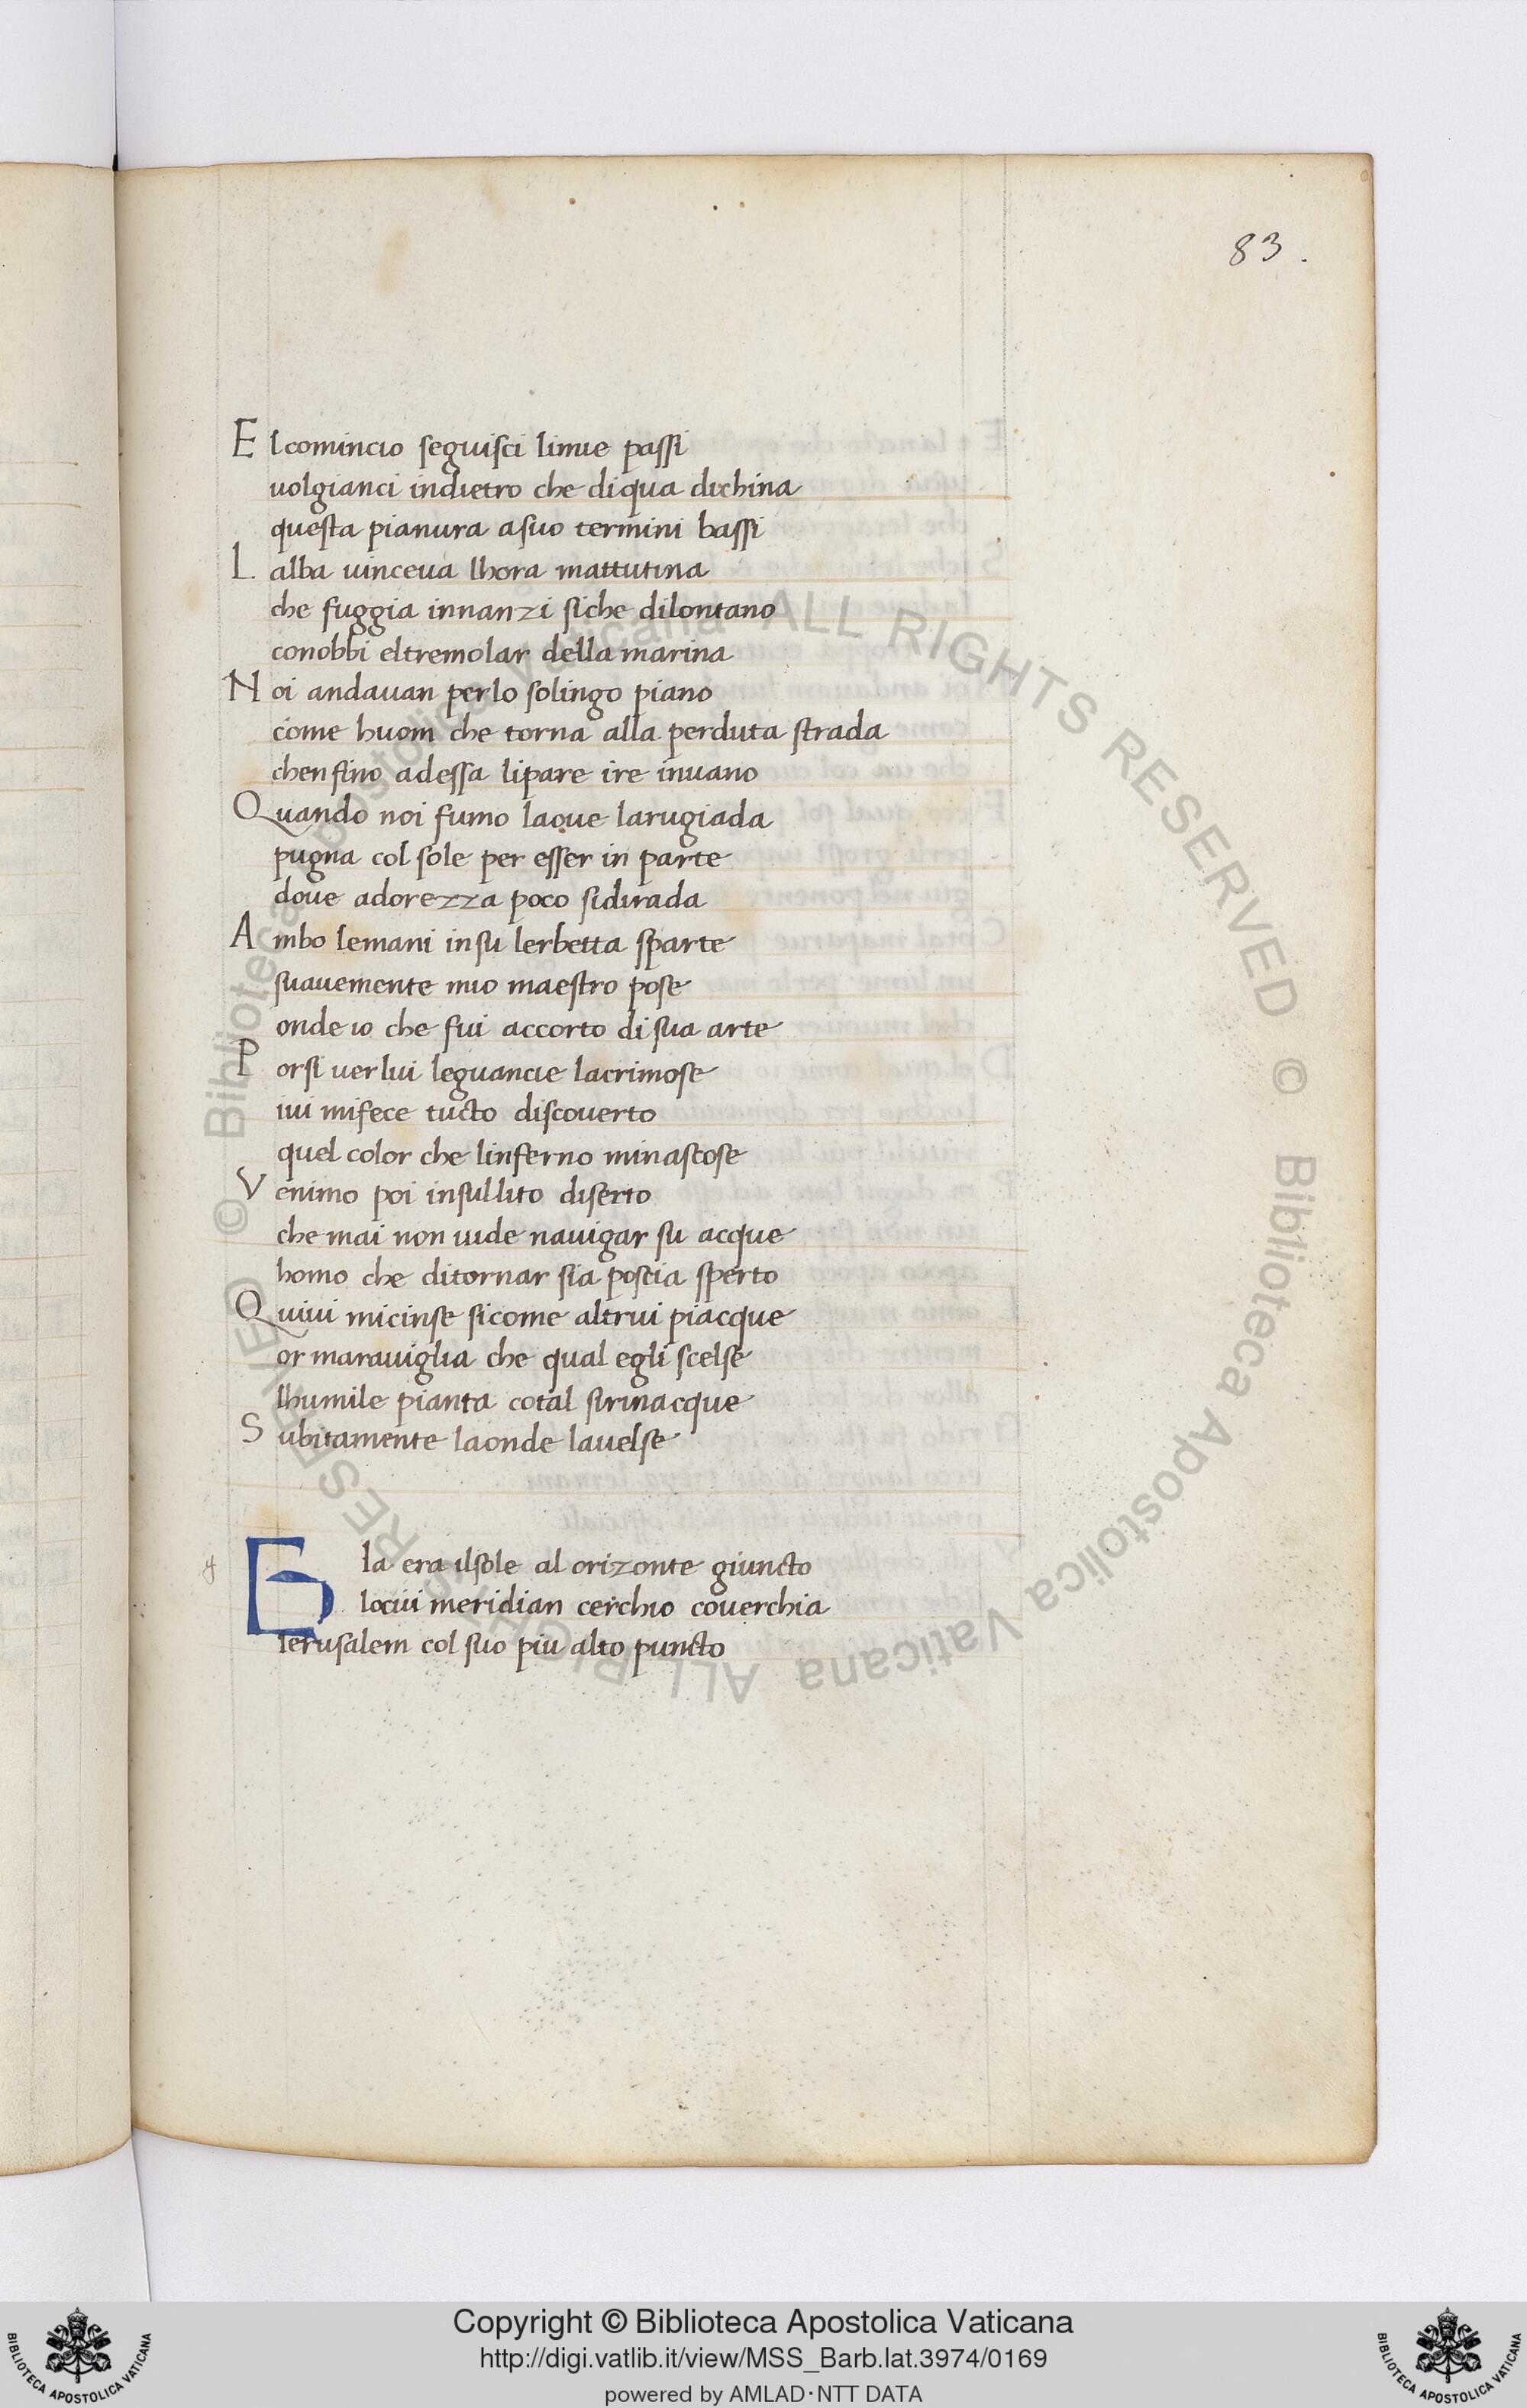 83.
El comincio seguisci limie passi
uolgianci indietro che diqua dichina
questa pianura asuo termini bassi
L alba uinceua lhora mattutina
che fuggia innanzi siche dilontano
conobbi eltremolar della marina
Noi andauan perlo solingo piano
come huom che torna alla perduta strada
chenfino adessa lipare ire inuano
Quando noi fumo laoue larugiada
pugna col sole per esser in parte
doue adorezza poco sidirada
Ambo lemani insu lerbetta sparte
suauemente mio maestro pose
onde io che fui accorto di sua arte
Porsi uerlui leguancie lacrimose
iui mifece tucto discouerto
quel color che linferno minascose
Venimo poi insullito diserto
che mai non uide nauigar su acque
homo che ditornar sia poscia sperto
Quiui micinse sicome altrui piacque
or marauiglia che qual egli scelse
lhumile pianta cotal sirinacque
Subitamente laonde lauelse
la era ilsole al orizonte giuncto
locui meridian cerchio couerchia
Ierusalem col suo piu alto puncto
© Biblioteca Apostolica Vaticana ALL RIGHTS RESERVED © Biblioteca Apostolica Vaticana ALL RIGHTS RESERVED
Copyright © Biblioteca Apostolica Vaticana
http://digi.vatlib.it/view/MSS_Barb.lat.3974/0169
powered by AMLAD·NTT DATA
BIBLIOTECA APOSTOLICA VATICANA
BIBLIOTECA APOSTOLICA VATICANA